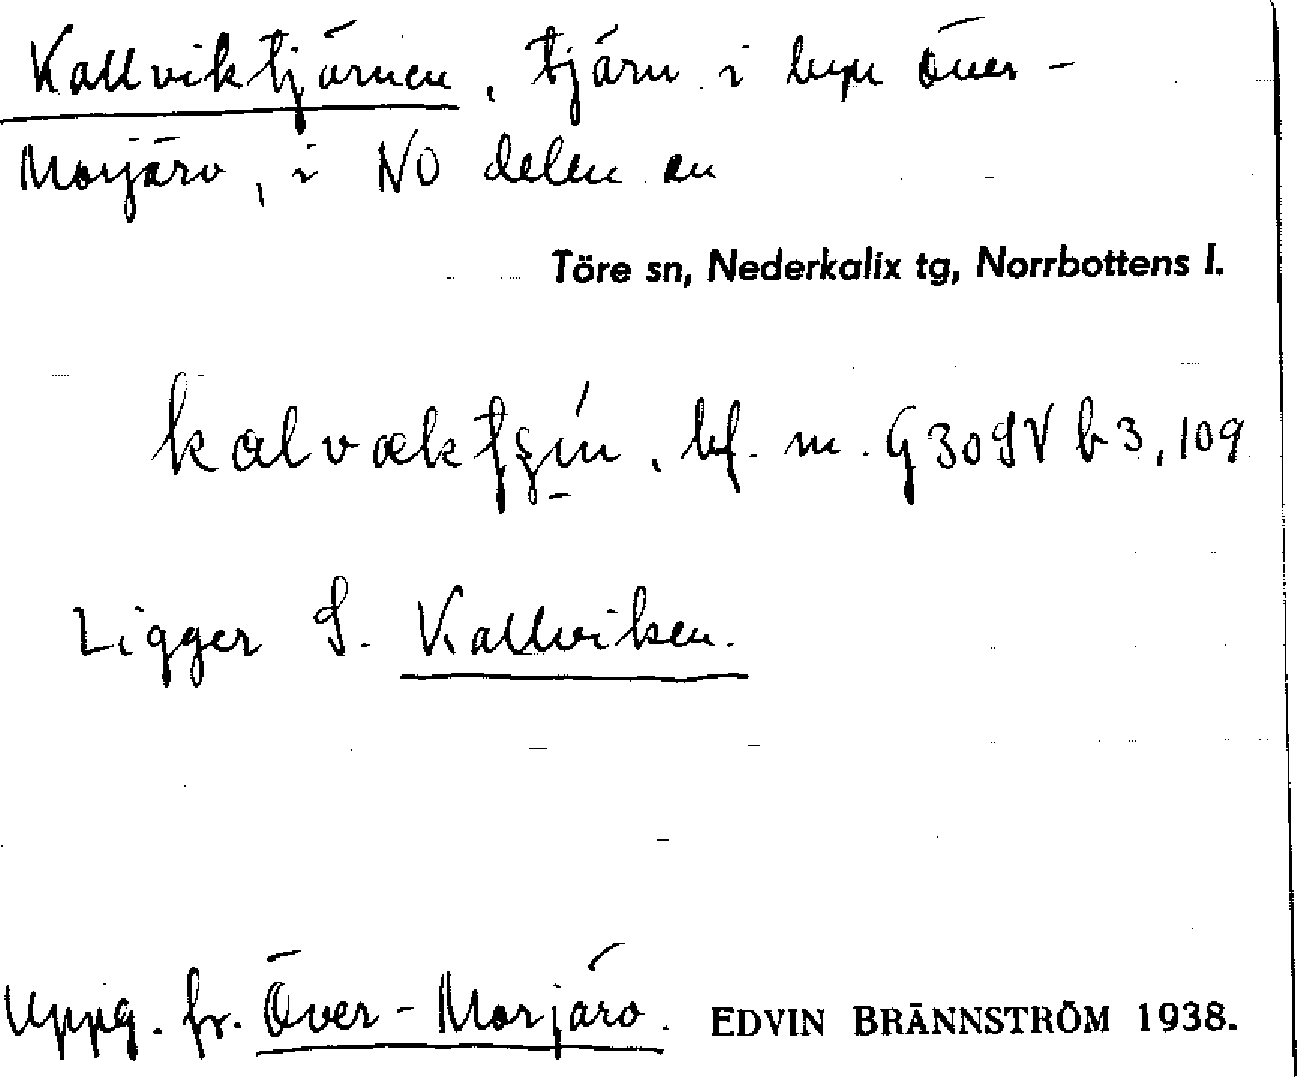 Kallviktjärnen, tjärn i byn Över-
Morjärv, i NO delen av
Töre sn, Nederkalix tg, Norrbottens l.
bf. m. G 30 SV b 3, 109
Ligger S. Kallviken.
Uppg. fr. Över-Morjärv. EDVIN BRÄNNSTRÖM 1938.